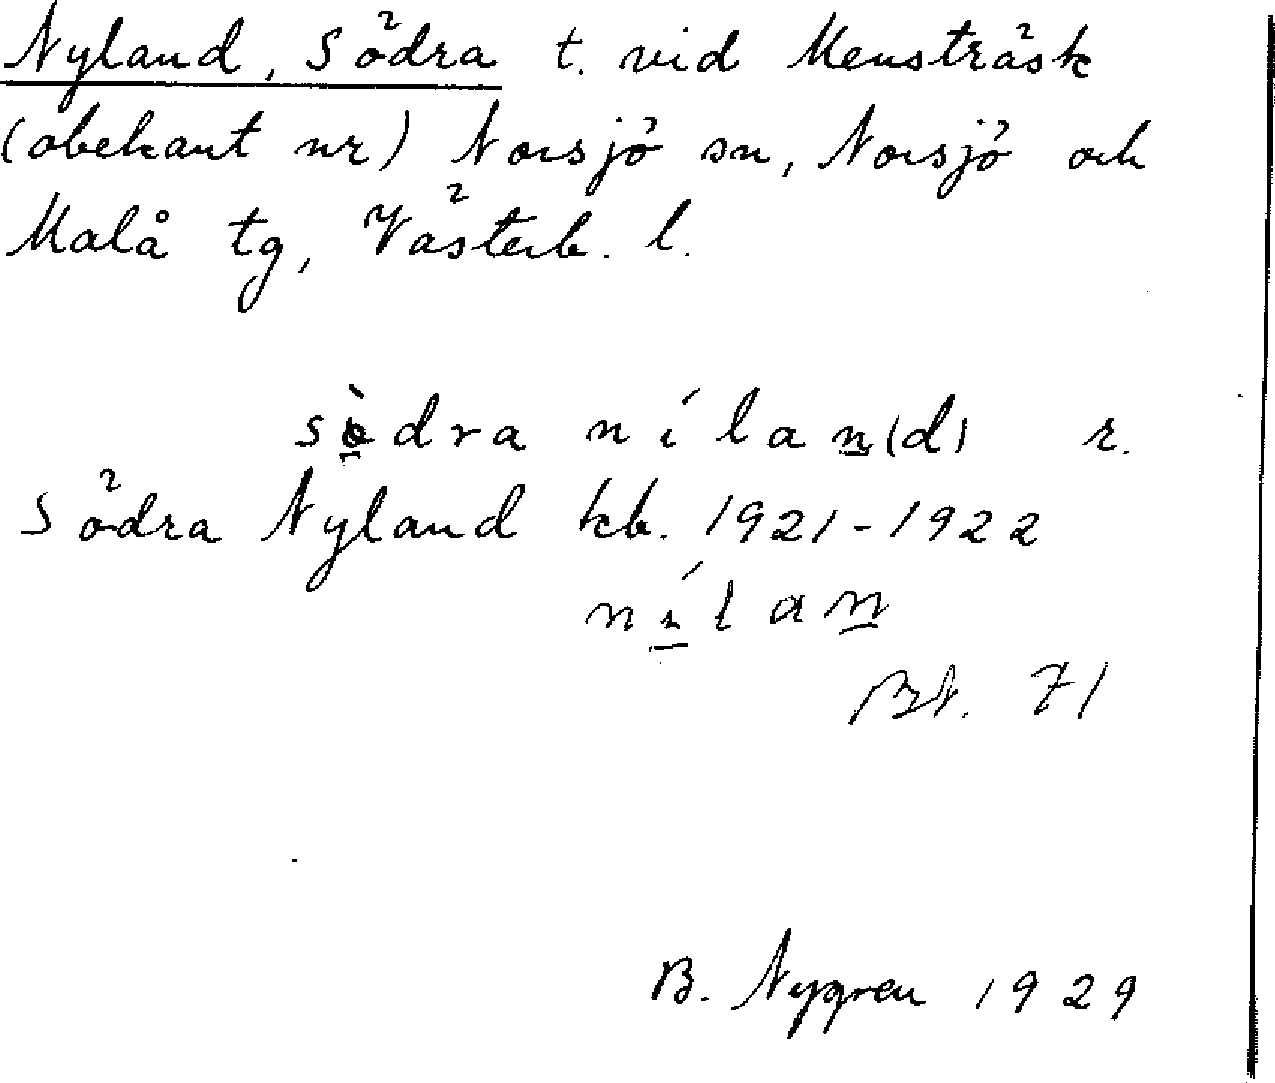 Nyland, Södra t. vid Mensträsk
(obekant nr) Norsjö sn, Norsjö och
Malå tg, Västerb. l.
södra nílan(d) r.
Södra Nyland kb. 1921-1922
nílan
Bt. 71
B. Nygren 1929